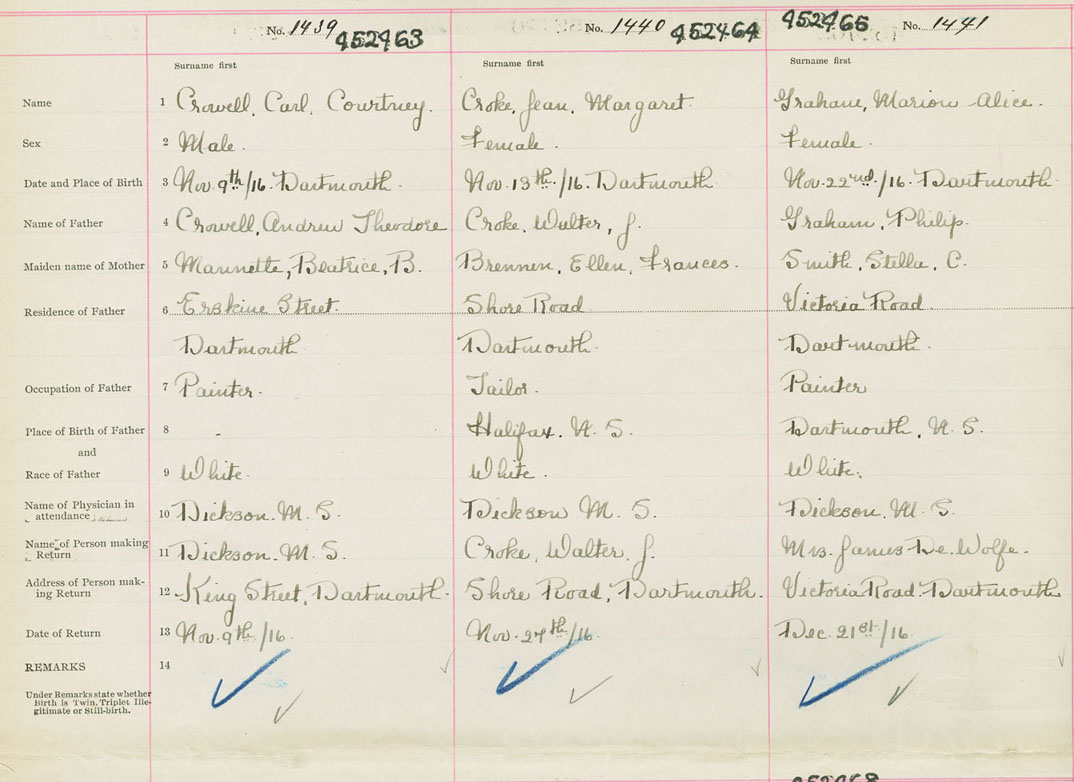 No. 1439 452463 No. 1440 452464 452465 No. 1441
Surname first Surname first Surname first
Name 1 Crowell, Carl, Courtney. Croke, Jean, Margaret. Graham, Marion Alice.
Sex 2 Male. Female. Female.
Date and Place of Birth 3 Nov. 9th/16. Dartmouth. Nov. 13th/16. Dartmouth Nov. 22nd/16. Dartmouth.
Name of Father 4 Crowell, Andrew Theodore Croke, Walter, J. Graham, Philip.
Maiden name of Mother 5 Mannette, Beatrice, B. Brennen, Ellen, Frances. Smith, Stella, C.
Residence of Father 6 Erskine Street. Shore Road Victoria Road.
Dartmouth Dartmouth. Dartmouth.
Occupation of Father 7 Painter. Tailor. Painter
Place of Birth of Father 8 - Halifax. N. S. Dartmouth, N. S.
and
Race of Father 9 White. White. White.
Name of Physician in
attendance 10 Dickson. M. S. Dickson M. S. Dickson. M. S.
Name of Person making
Return 11 Dickson. M. S. Croke, Walter J. Mrs. James De Wolfe.
Address of Person mak-
ing Return 12 King Street, Dartmouth. Shore Road, Dartmouth. Victoria Road. Dartmouth
Date of Return 13 Nov. 9th/16. Nov. 27th/16. Dec. 21st/16.
REMARKS 14
Under Remarks state whether
Birth is Twin, Triplet Ille-
gitimate or Still-birth.